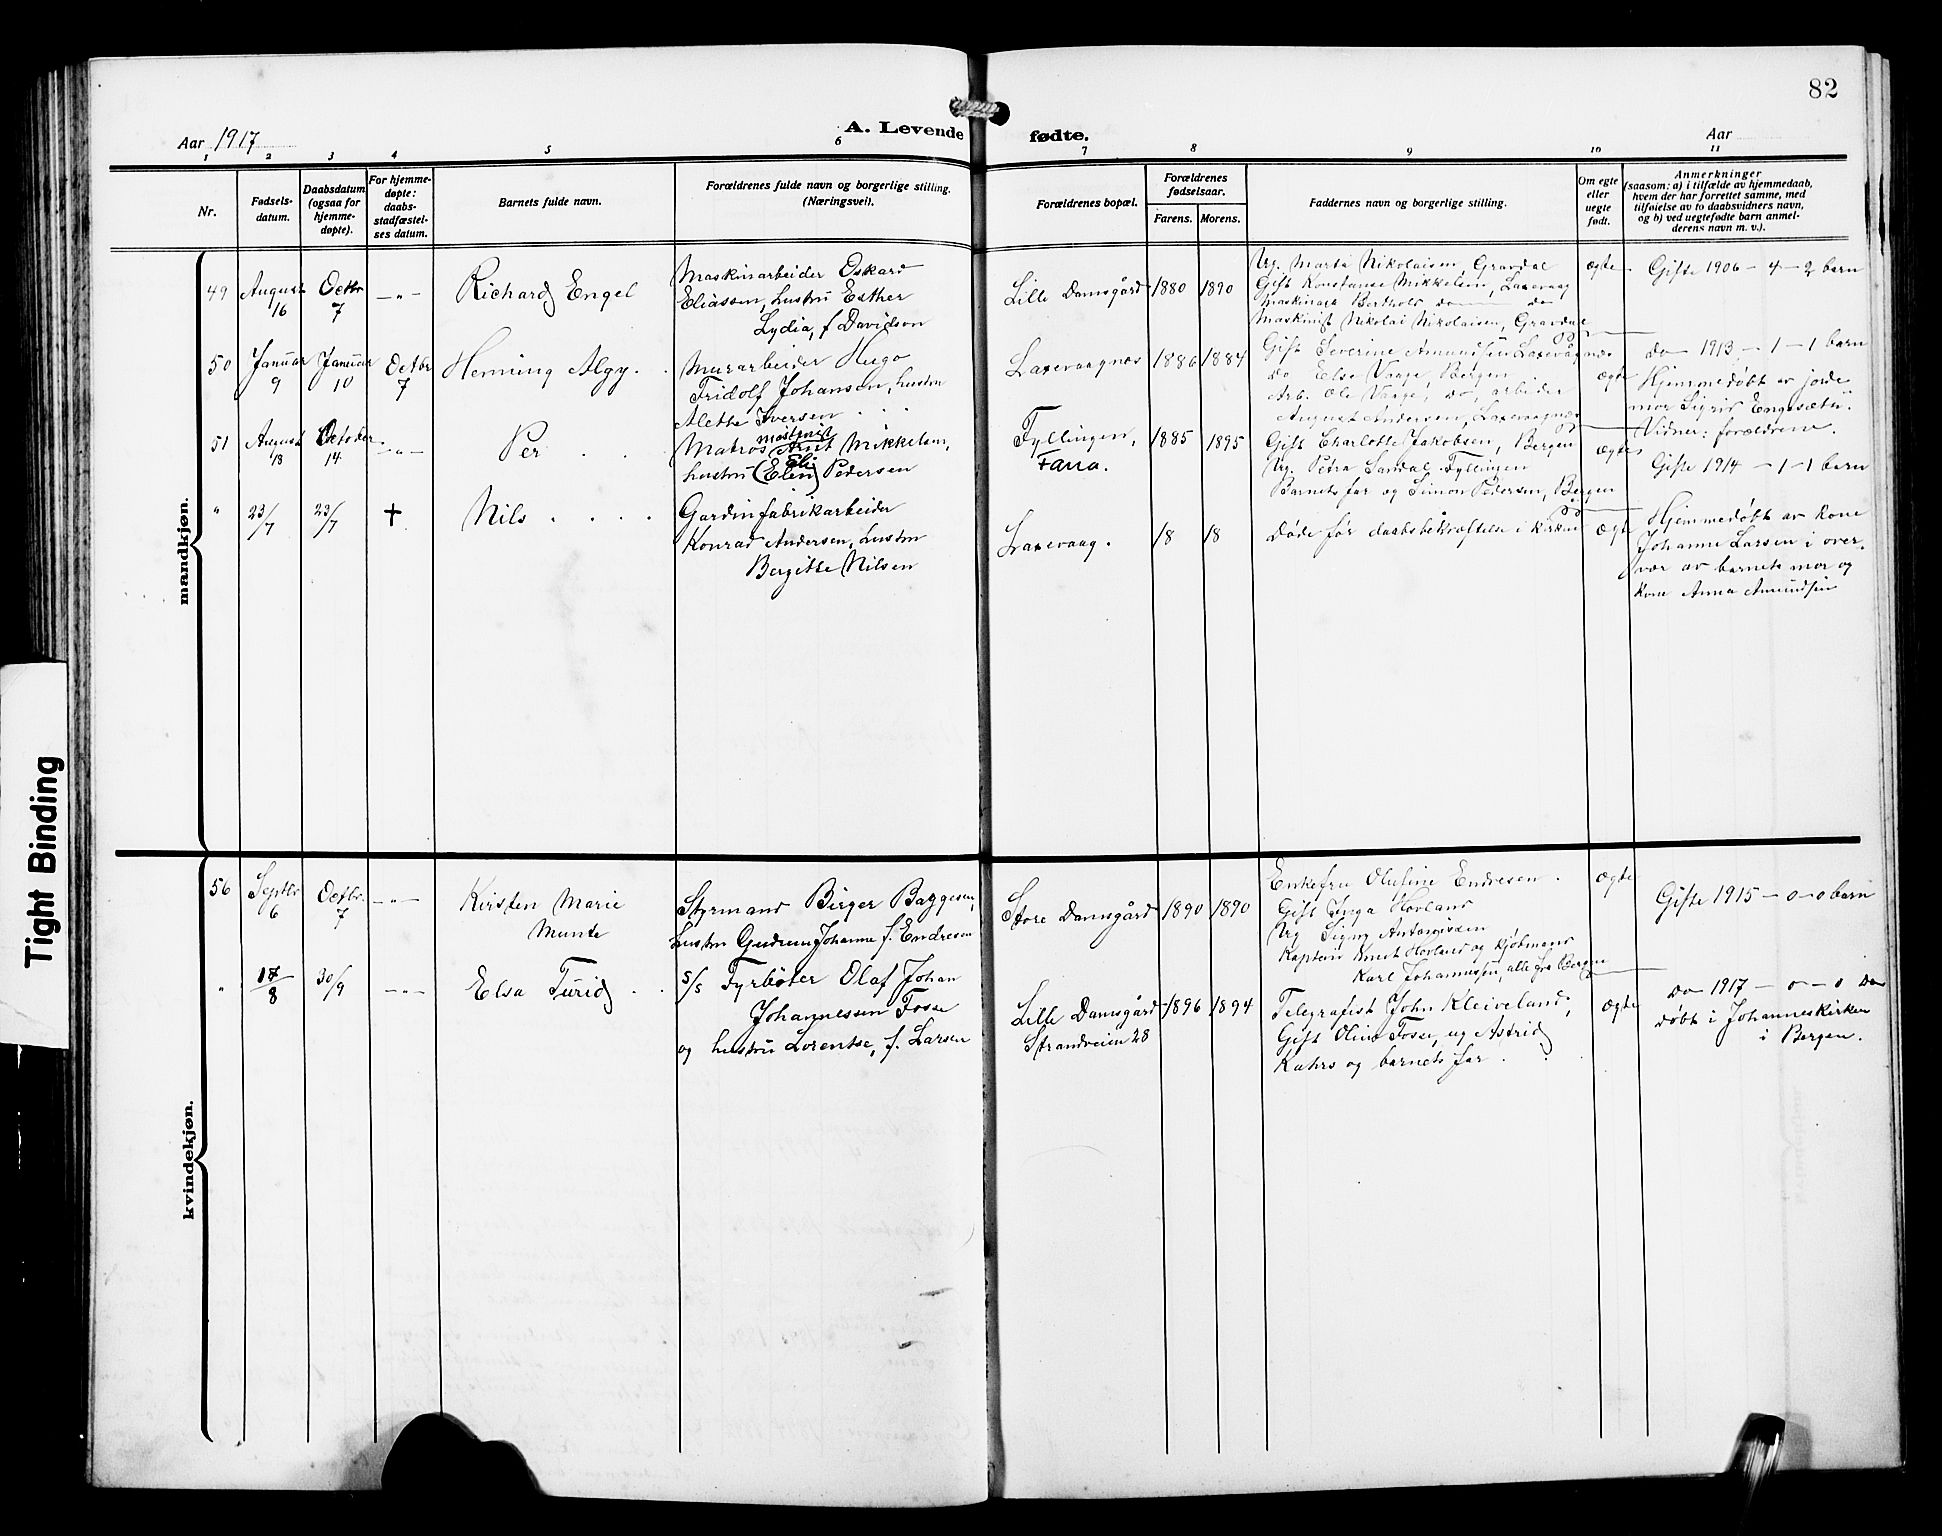 82
Aar 1917
A. Levende fødte.
Aar
1 2 3 4 5 6 7 8 9 10 11
Nr.
Fødsels-
datum.
Daabsdatum
(ogsaa for
hjemme-
døpte).
For hjemme-
døpte:
daabs-
stadfæstel-
ses datum.
Barnets fulde navn.
Forældrenes fulde navn og borgerlige stilling.
(Næringsvei).
Forældrenes bopæl.
Forældrenes
fødselsaar.
Farens. Morens.
Faddernes navn og borgerlige stilling.
Om egte
eller
uegte
født.
Anmerkninger
(saasom: a) i tilfælde av hjemmedaab,
hvem der har forrettet samme, med
tilføielse av to daabsvidners navn,
og b) ved uegtefødte barn anmel-
derens navn m. v.).
mandkjøn.
49
August
16
Octbr
7
-"-
Richard Engel
Maskinarbeider Oskard
Eliassen, hustru Esther
Lydia, f Davidson
Lille Damsgård
1880
1890
Ug. Marta Nikolaisen, Gravdal
Gift Konstanse Mikkelsen, Laxevaag
Maskinist Berthold do do
Maskinist Nikolai Nikolaisen, Gravdal
ægte
Gifte 1906 - 4 - 2 barn
50
Januar
9
Januar
10
Octbr
7
Henning Algy
Murarbeider Hugo
Fridolf Johansen, hustru
Alette Iversen
Laxevaagnæs
1886
1884
Gift Severine Amundsen Laxevågnæs
do Else Vaage, Bergen
Arb. Ole Vaage, do, arbeider
August Andersen, Laxevaagnæs
ægte
do 1913 - 1 - 1 barn
Hjemmedøbt av jorde
mor Sigrid Engesæth.
Vidner: forældrene.
51
August
18
October
14
-"-
Per
maskinist
Matros Arnt Mikkelsen,
Eli
hustru (Elen) Pedersen
Fyllingen,
Fana.
1885
1895
Gift Charlotte Jakobsen, Bergen
Ug. Petra Sandal Fyllingen
Barnets far og Simon Pedersen, Bergen
ægte
Gifte 1914 - 1 - 1 barn
"
23/7
23/7
+
Nils
Gardinfabrikarbeider
Konrad Andersen, hustru
Bergitte Nilsen
Laxevaag.
18
18
Døde før daabsbekræftelse i kirken
ægte
Hjemmedøbt av kone
Johanne Larsen i over-
vær av barnets mor og
kone Anna Amundsen
kvindekjøn.
56
Septbr
6
Octbr.
7
-"-
Kirsten Marie
Munte
Styrmand Birger Baggesen,
hustru Gudrun Johanne f. Endresen
Store Damsgård
1890
1890
Enkefru Olufine Endresen.
Gift Inga Hovland
Ug Signy Antonissen
Kaptein Knut Hovland og kjøbmand
Karl Johannessen, alle fra Bergen
ægte
Gifte 1915 - 0 - 0 barn
"
17/8
30/9
-"-
Elsa Turid
s/s Fyrbøter Olaf Johan
Johannessen Fosse
og hustru Lorentse, f. Larsen
Lille Damsgård
Strandveien 28
1896
1894
Telegrafist John Kleiveland,
Gift Olina Fosse, ug Astrid
Kahrs og barnets far.
ægte
do 1917 - 0 - 0 do
døbt i Johanneskirken
i Bergen.
Tight Binding